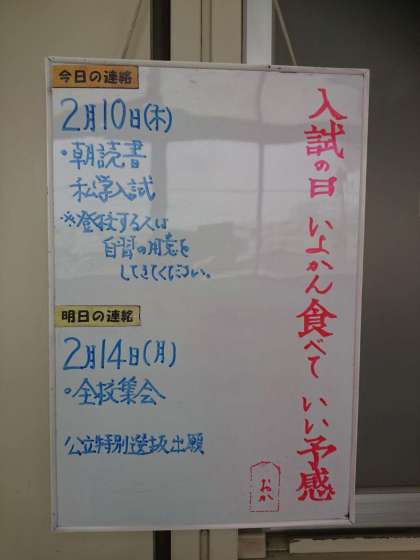 今日の連絡
2月10日(木)
・朝読書
私学入試
※登校する人は
自習の用意を
してきてください。
明日の連絡
2月14日(月)
・全校集会
公立特別選抜出願
入試の日 いよかん食べて いい予感
おか